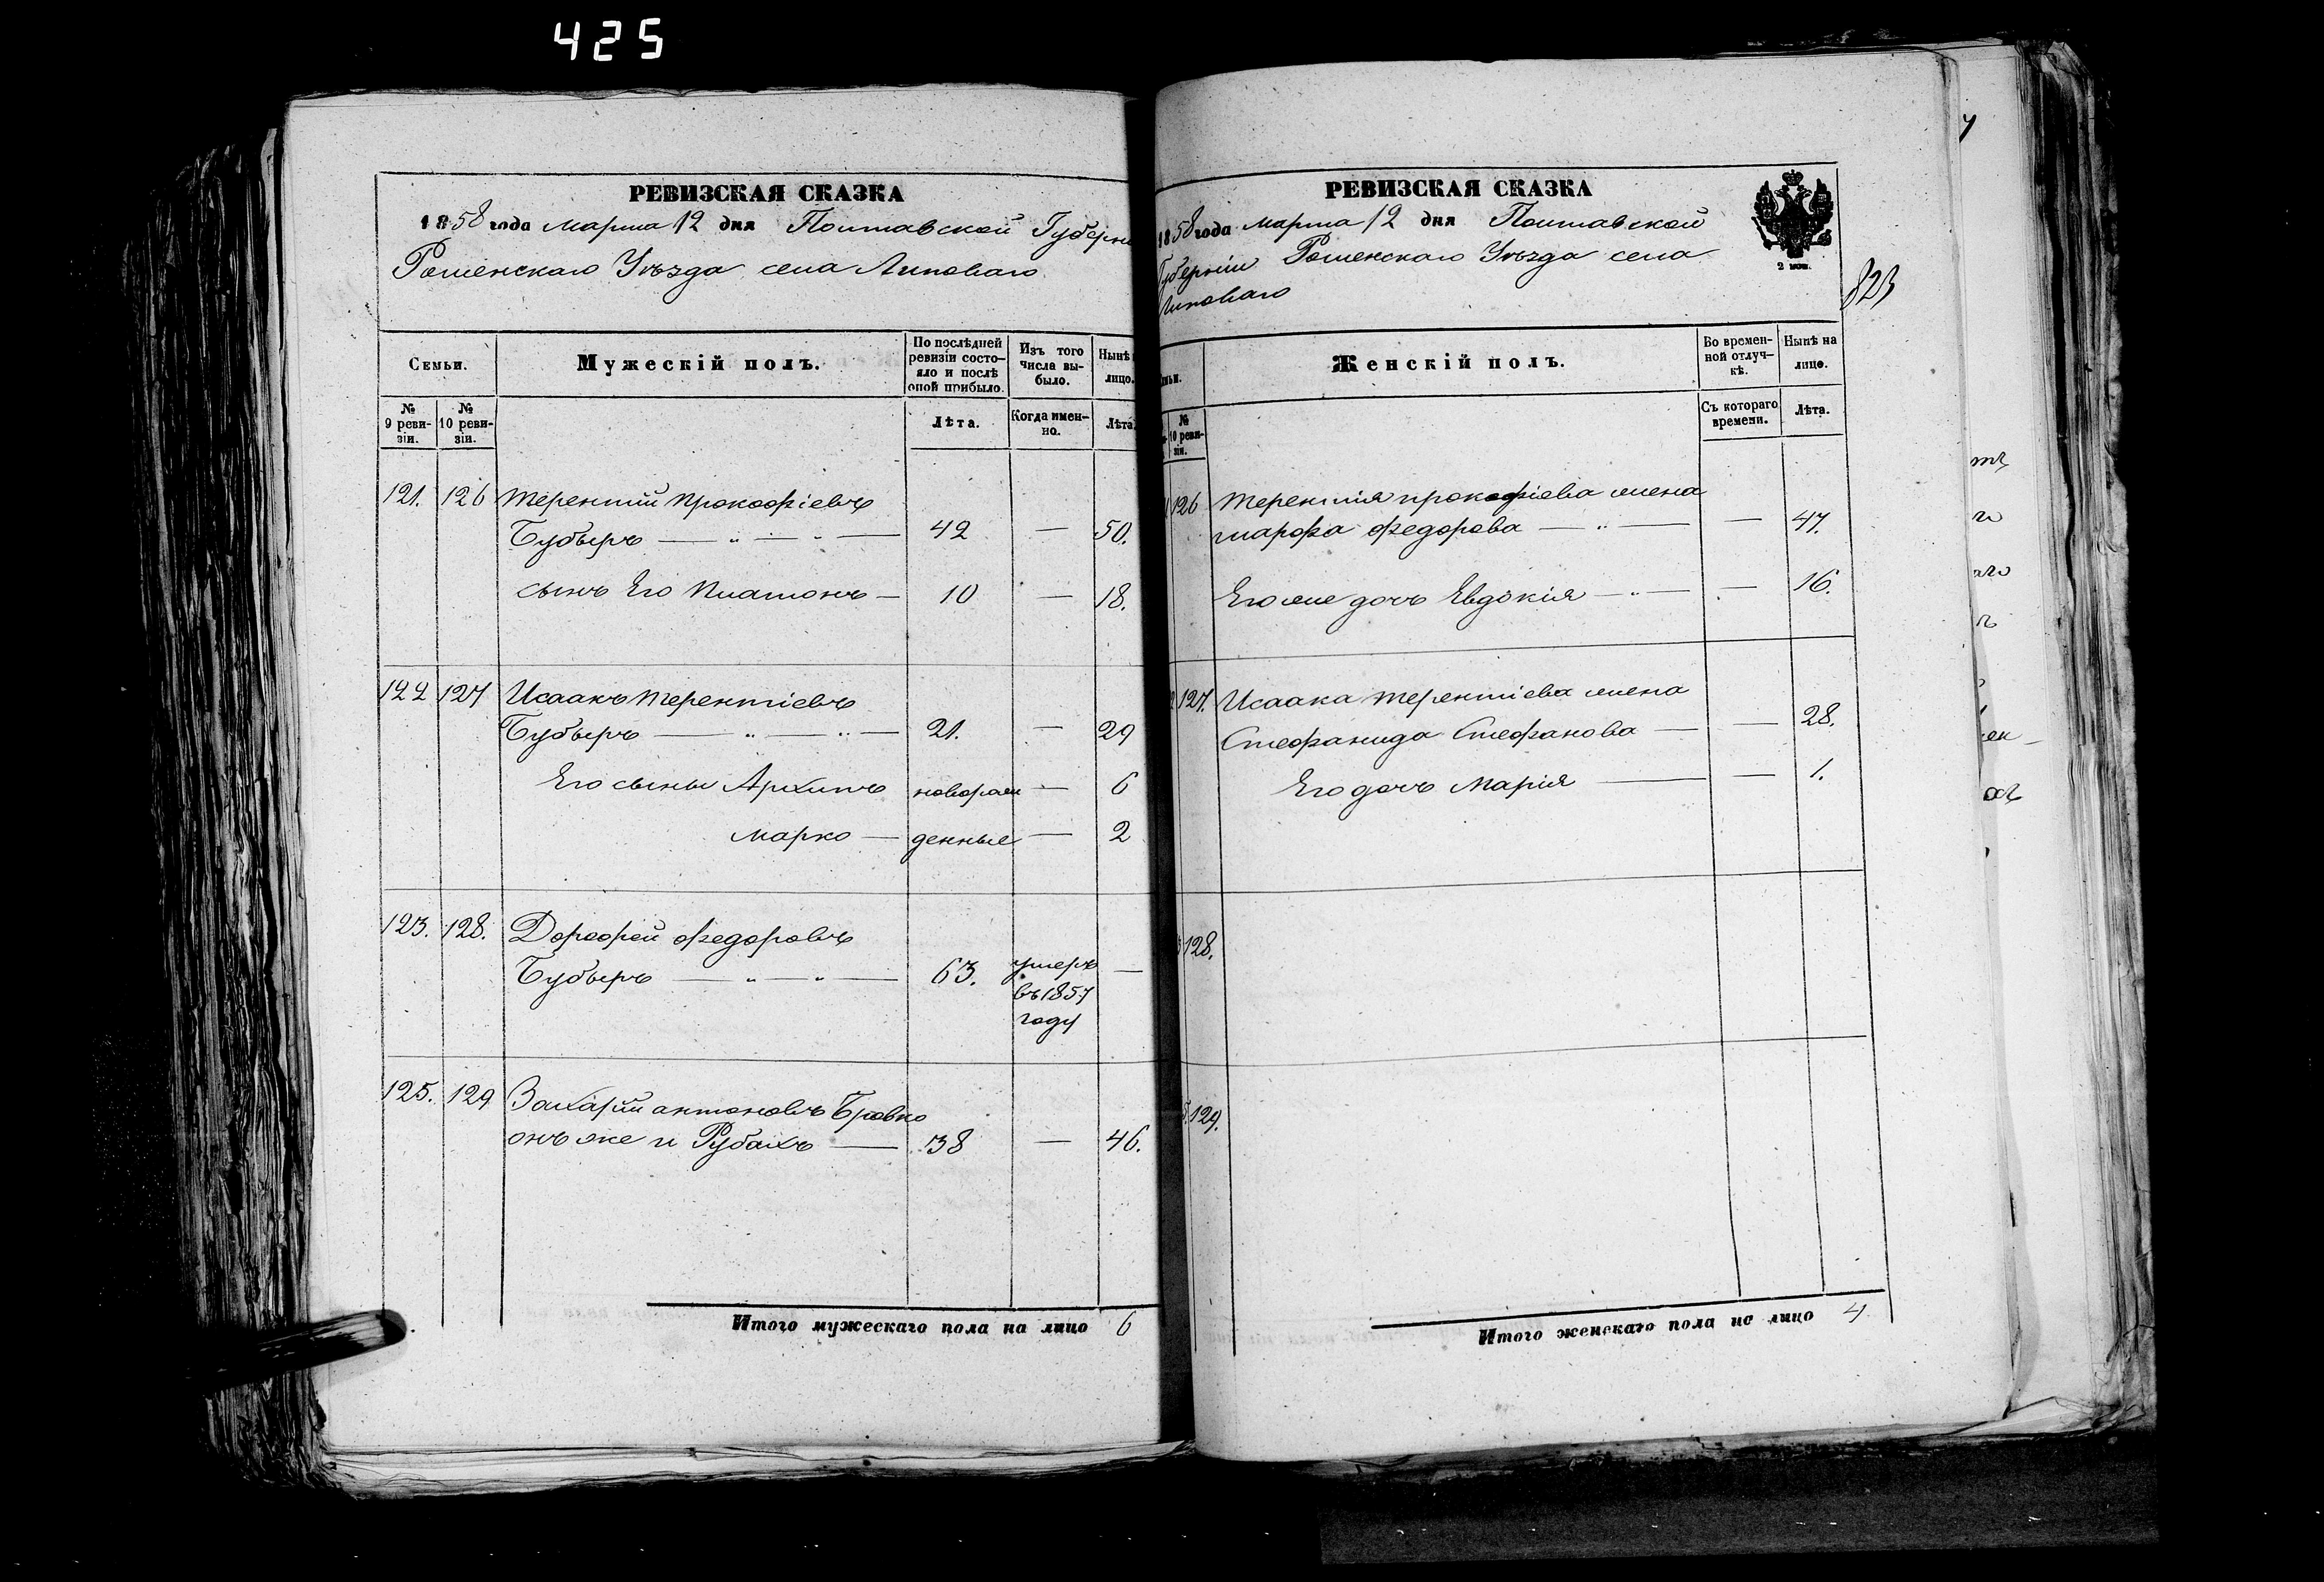 425
РЕВИЗСКАЯ СКАЗКА
1858 года марта 12 дня Полтавской Губерни
Роменскаго Уѣзда села Липоваго
Семьи.
Мужескій полъ.
По послѣдней ревизіи состояло и послѣ оной прибыло.
Изъ того числа выбыло.
Нынѣ
лицо.
№ 9 ревизіи.
№ 10 ревизіи.
Лѣта.
Когда именно.
Лѣта.
121. 126 Терентій Прокофіевъ
Бубыръ — „ — „ — 42 — 50.
сынъ Его Платонъ — 10 — 18.
122 127 Исаакъ Терентіевъ
Бубыръ — „ — „ — 21. — 29
Его сыны Архипъ новорож — 6
Марко — денные — 2
123. 128. Дорофей Федоровъ
Бубыръ — „ — „ — 63. умеръ —
въ 1857
году
125. 129 Захарій Антоновъ Бровко
онъ же и Рубахъ — 38 — 46.
Итого мужескаго пола на лицо 6
РЕВИЗСКАЯ СКАЗКА
1858 года марта 12 дня Полтавской
Губерніи Роменскаго Уѣзда села
Липоваго
2 коп.
823
Женскій полъ.
Во временной отлучкѣ.
Нынѣ на лице.
№ 10 ревизіи.
Съ котораго времени.
Лѣта.
126 Терентія Прокофіева жена
Марфа Федорова — „ — — 47.
Его же дочь Евдокія — „ — — 16.
127. Исаака Терентіева жена
Стефанида Стефанова — — 28.
Его дочь Марія — — 1.
128.
129.
Итого женскаго пола на лицо 4